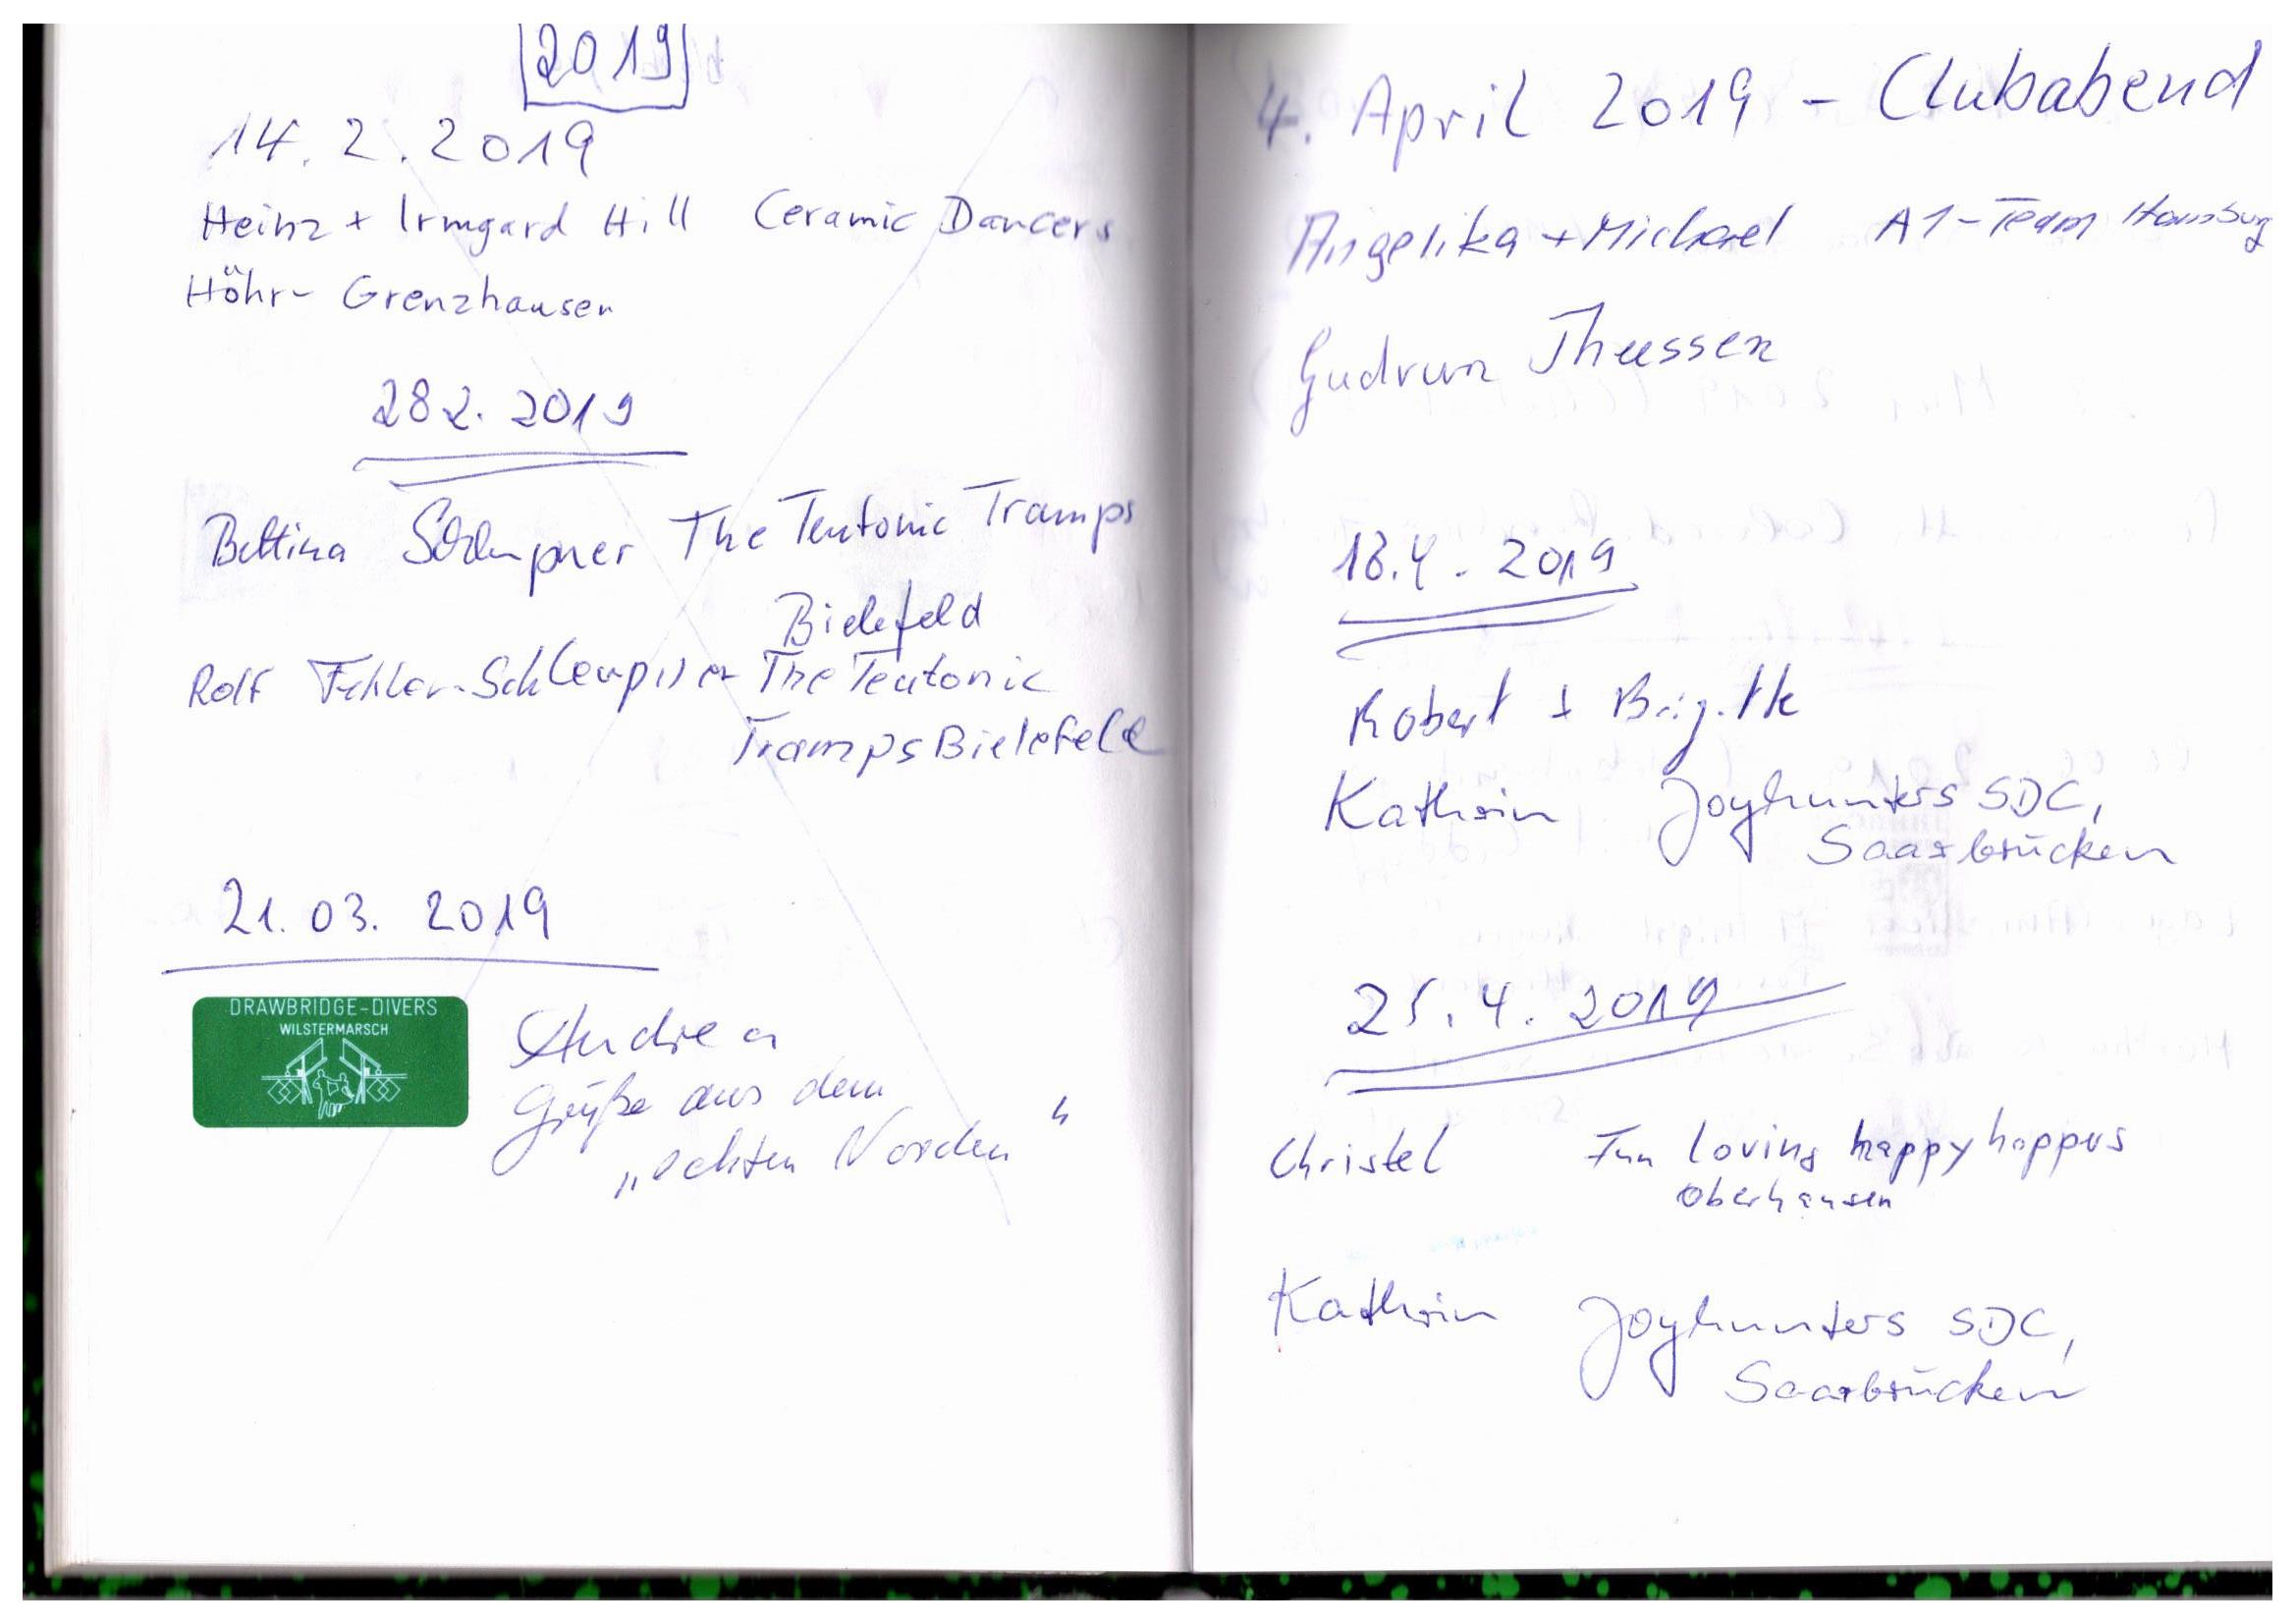 2019
14.2.2019
Heinz + Irmgard Hill Ceramic Dancers
Höhr-Grenzhausen
28 2. 2019
Bettina The Teutonic Tramps
Bielefeld
Rolf The Teutonic
Tramps Bielefeld
21.03.2019
DRAWBRIDGE-DIVERS
WILSTERMARSCH
Andrea
Grüße aus dem
„echten Norden“
4. April 2019 - Clubabend
Angelika + Michael A1-Team Hamburg
Gudrun Thiessen
18.4.2019
Robert + Brigitte
Kathrin Joyhunters SDC,
Saarbrücken
25.4.2019
Christel Fun loving happy hoppers
Oberhausen
Kathrin Joyhunters SDC,
Saarbrücken